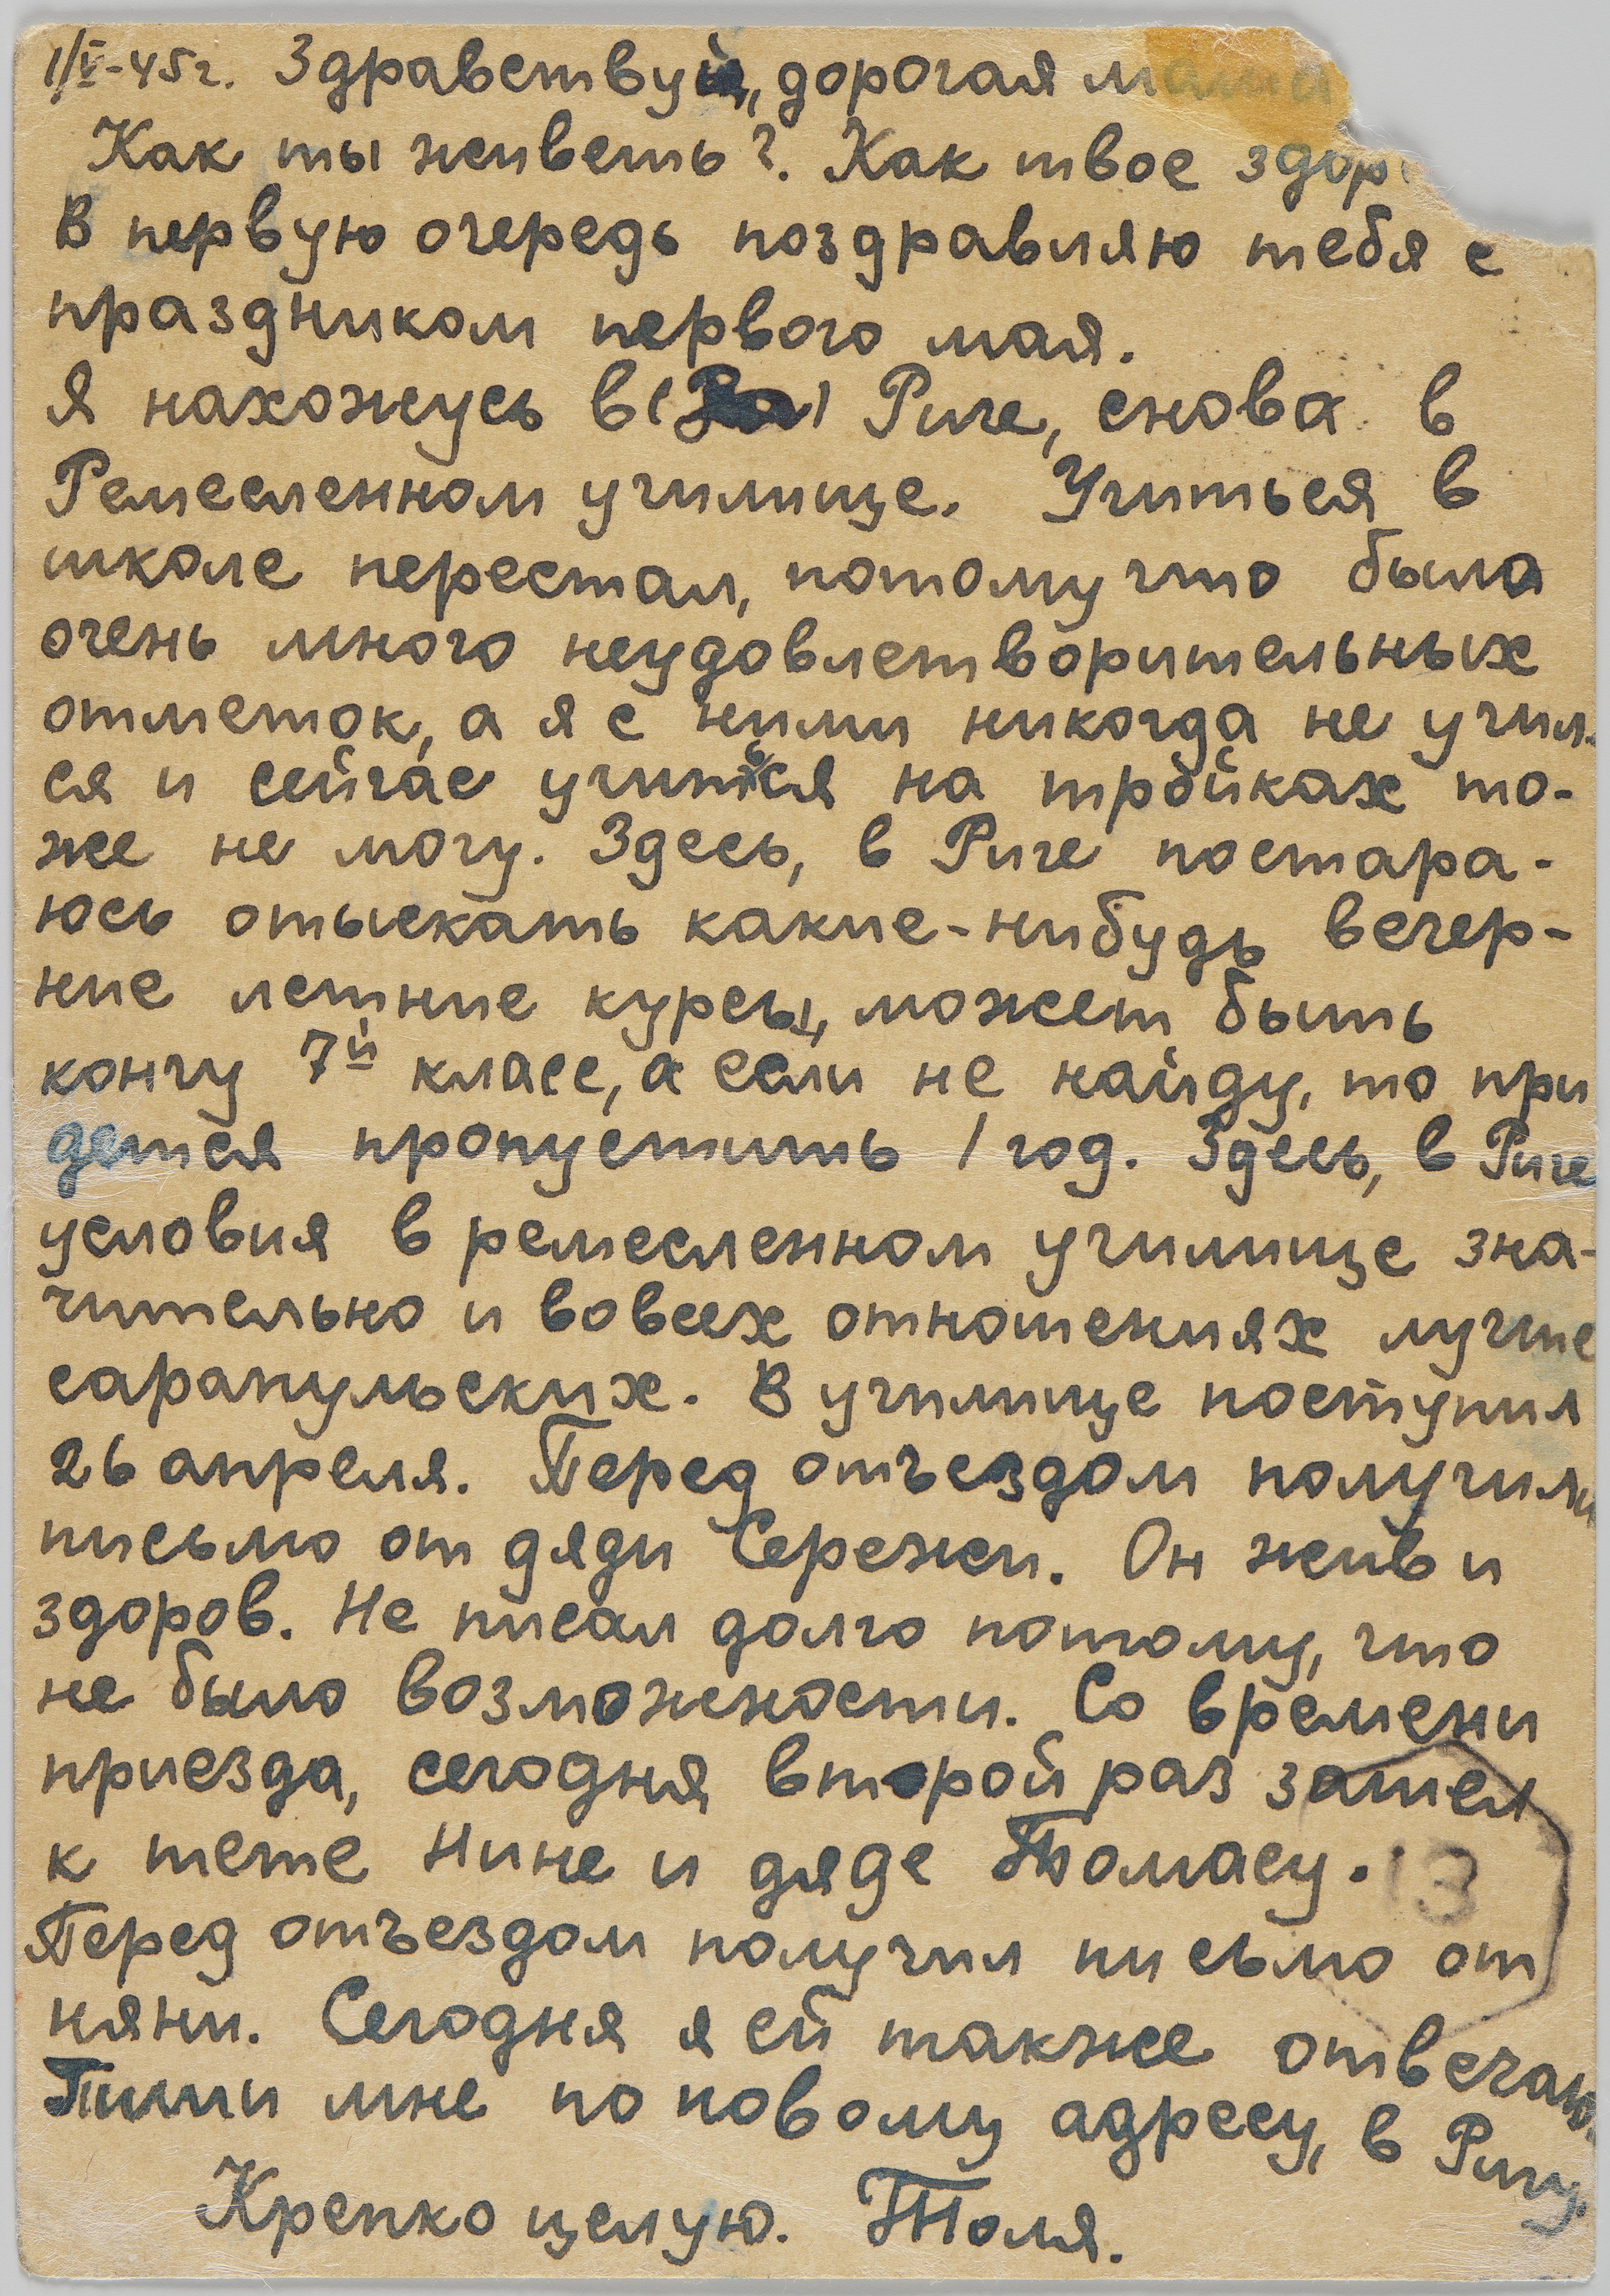 1/V-45г. Здравствуй, дорогая мама
Как ты живеть? Как твое здор
В первую очередь поздравляю тебя с
праздником первого мая.
Я нахожусь в ( ) Риге, снова в
Ремесленном училище. Учиться в
школе перестал, потому что было
очень много неудовлетворительных
отметок, а я с ними никогда не учил-
ся и сейчас учиться на тройках то-
же не могу. Здесь, в Риге постара-
юсь отыскать какие-нибудь вечер-
ние летние курсы, может быть
кончу 7й класс, а если не найду, то при
дется пропустить 1 год. Здесь, в Риге
условия в ремесленном училище зна-
чительно и вовсех отношениях лучше
сарапульских. В училище поступил
26 апреля. Перед отъездом получили
письмо от дяди Сережи. Он жив и
здоров. Не писал долго потому, что
не было возможности. Со времени
приезда, сегодня второй раз зашел
к тете Нине и дяде Томасу.
13
Перед отъездом получил письмо от
няни. Сегодня я ей также отвечаю.
Пиши мне по новому адресу, в Ригу.
Крепко целую. Толя.